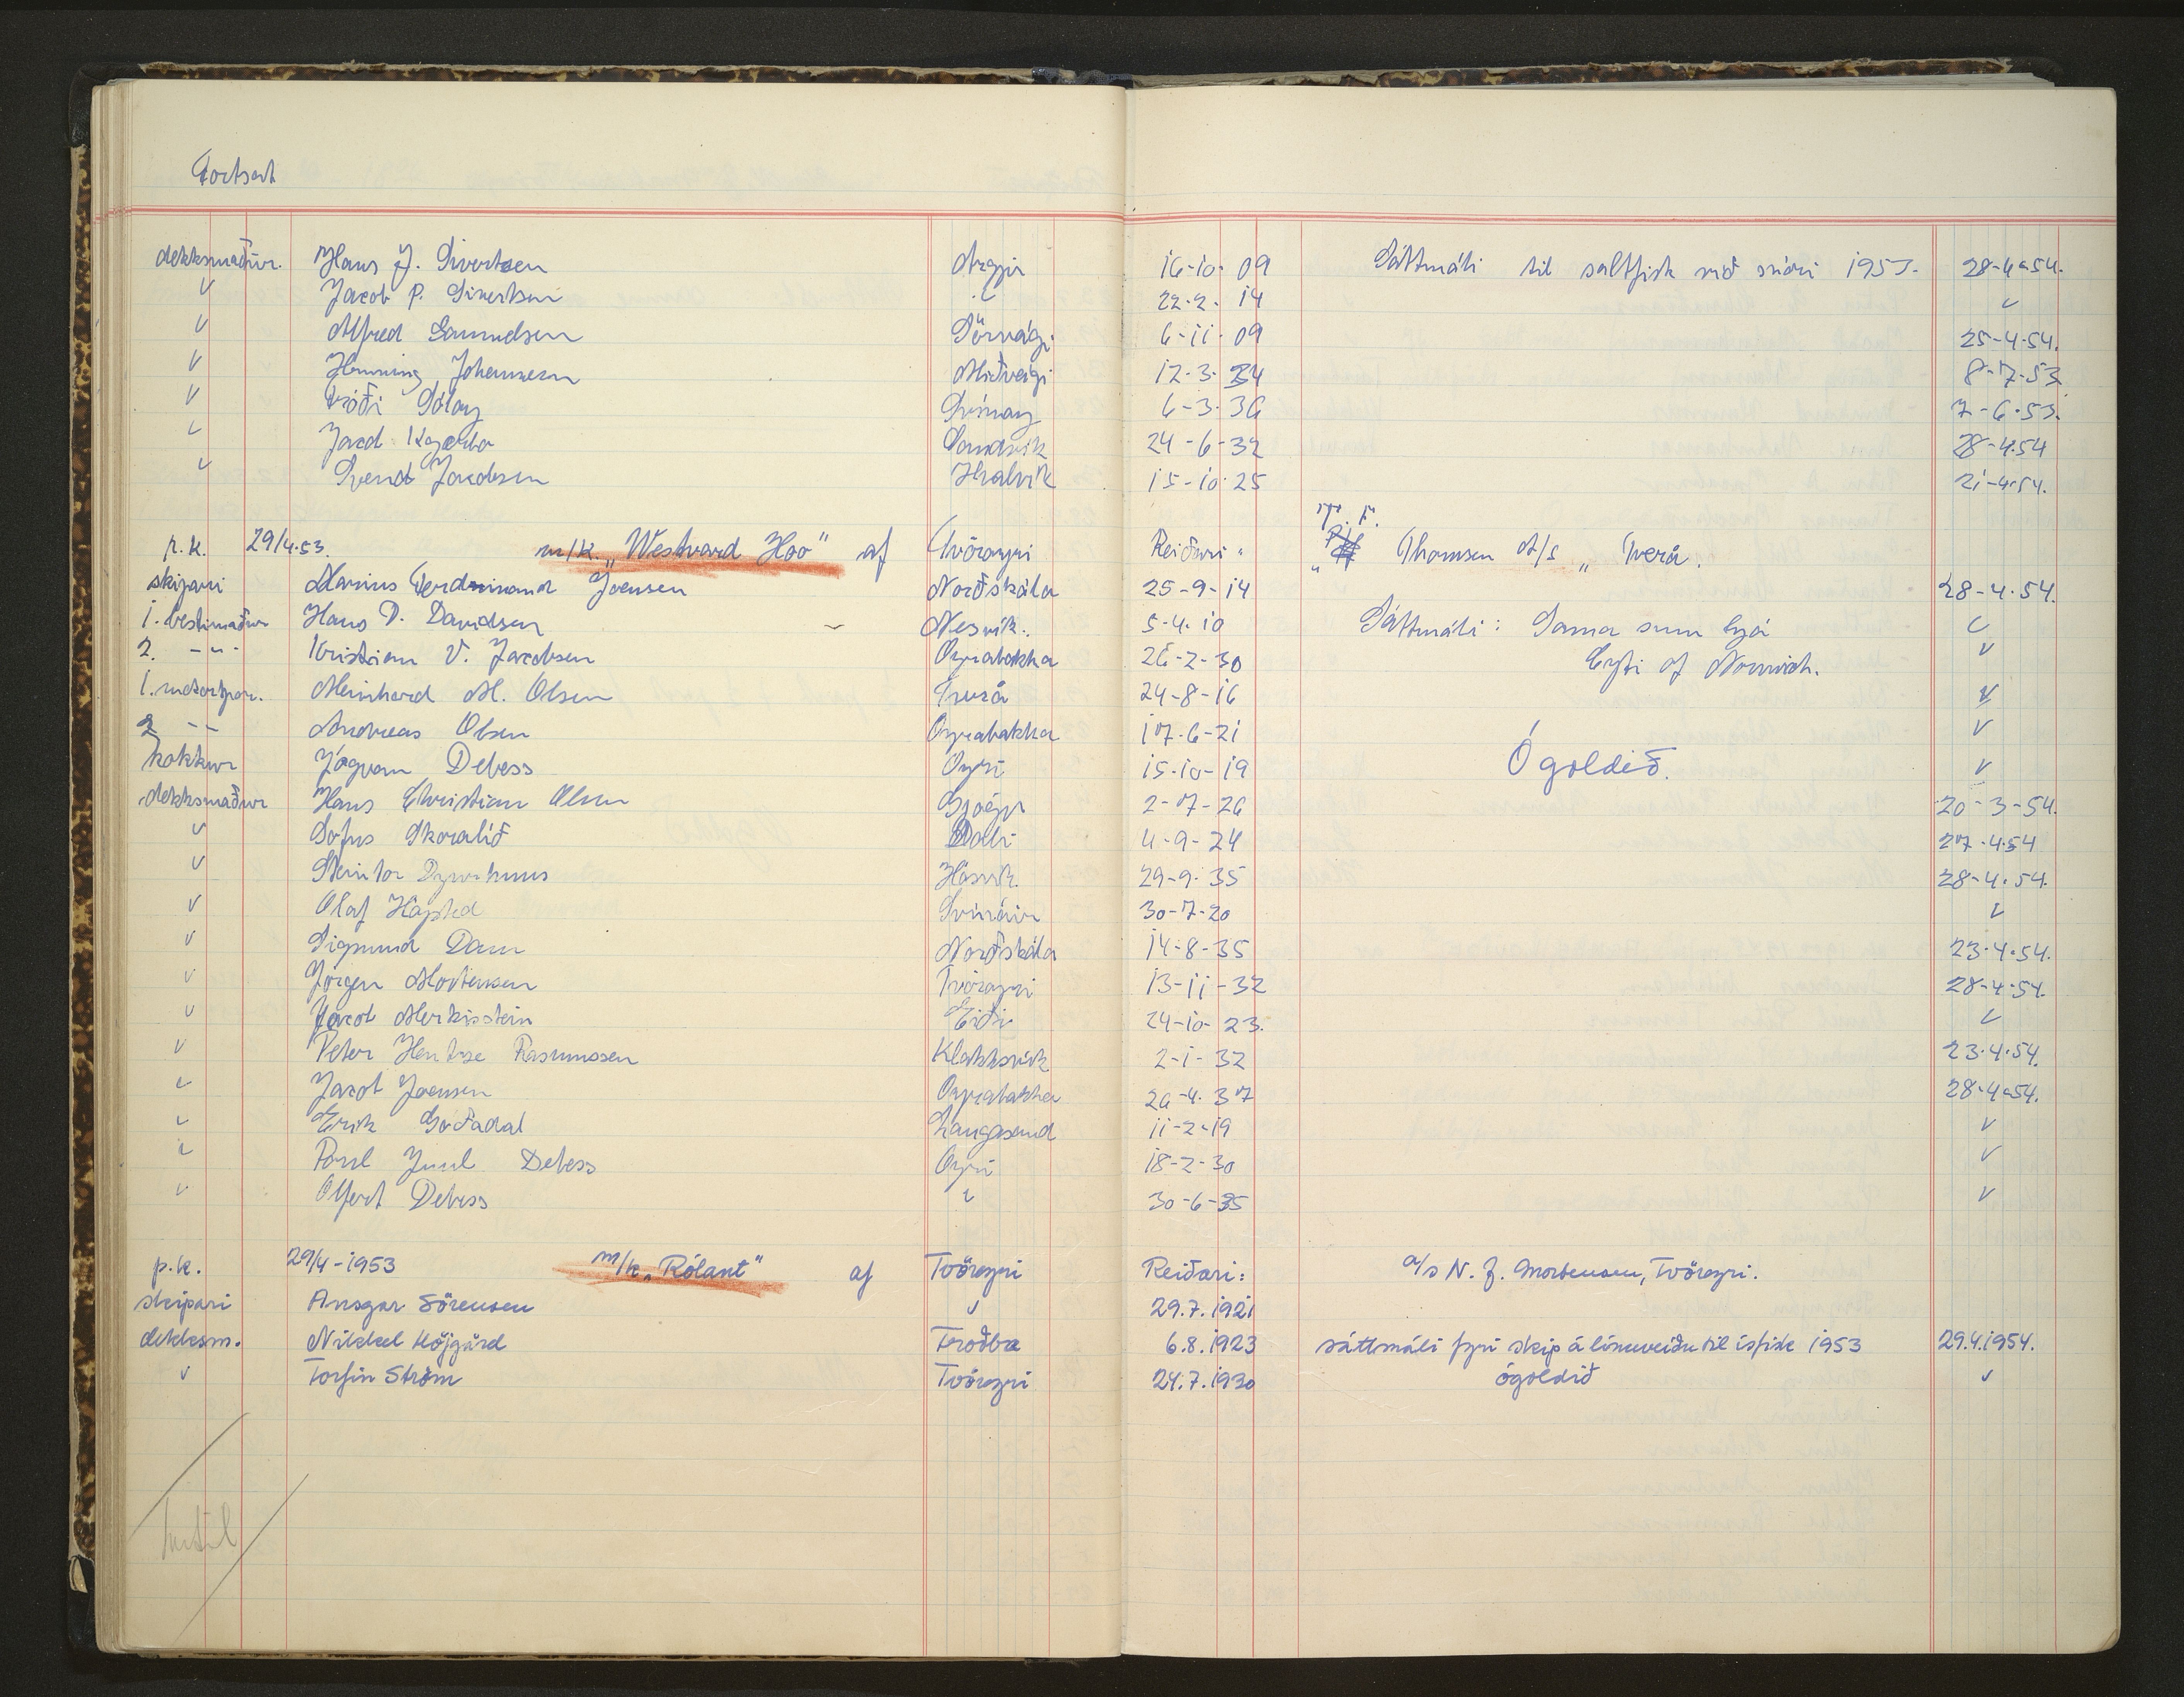 Fortsat
dekksmaður. Hans J. Sivertsen Argir 16-10-09 Sáttmáli til saltfisk við snöri 1953. 28-4-54.
v Jacob P. Sivertsen v 22-2-14 v
v Alfred Samuelsen Sörvági 6-11-09 25-4-54.
v Henning Johannesen Miðvági 12-3-34 8-7-53
v Fróði Dólay Svínoy 6-3-36 7-6-53.
v Jacob Kjærbo Sandvík 24-6-32 28-4-54
v Svend Jacobsen Hvalvík 15-10-25 21-4-54.
p.k. 29/4.53. m/k. „Westward Hoo" af Tvöroyri Reiðari: T. F. Thomsen A/s „ Tverá.
skipari Marius Ferdinand Joensen Norðskála 25-9-14 28-4-54.
1. bestimaður Hans D. Davidsen Nesvík. 5-4-10 Sáttmáli: Sama sum hjá v
2. -"- Kristian V. Jacobsen Oyrabakka 26-2-30 City of Norwich. v
1. motorpar. Meinhard M. Olsen Tverá 24-8-16 v
2 -- Andreas Olsen Oyrabakka 17-6-21 v
kokkur Jógvan Debess Oyri 15-10-19 Ógoldið. v
dekksmaður Hans Christian Olsen Gjógv 2-7-26 20-3-54.
v Sofus Skoralíð Dali 4-9-24 27-4-54
v Steintor Dyrhuus Hósvík. 29-9-35 28-4-54.
v Olaf Højsted Svináir 30-7-20 v
v Sigmund Dam Norðskála 14-8-35 23-4-54.
v Jörgen Mortensen Tvöroyri 13-11-32 28-4-54.
v Jacob Merkisstein Eiði 24-10-23. v
v Peter Hentze Rasmussen Klakksvík 2-1-32 23-4-54.
v Jacob Joensen Oyrabakka 26-4-37 28-4-54.
v Erik Goðadal Langasand 11-2-19 v
v Poul Juul Debess Oyri 18-2-30 v
v Olfert Debess v 30-6-35 v
p.k. 29/4-1953 m/k „Rólant" af Tvöroyri Reiðari: a/s N. J. Mortensen, Tvöroyri.
skipari Ansgar Sörensen v 29.7.1921
dekksm. Nikkel Höjgård Froðba 6.8.1923 sáttmáli fyri skip á línuveiðu til ísfisk 1953 29.4.1954.
v Torfin Ström Tvöroyri 24.7.1930 ógoldið v